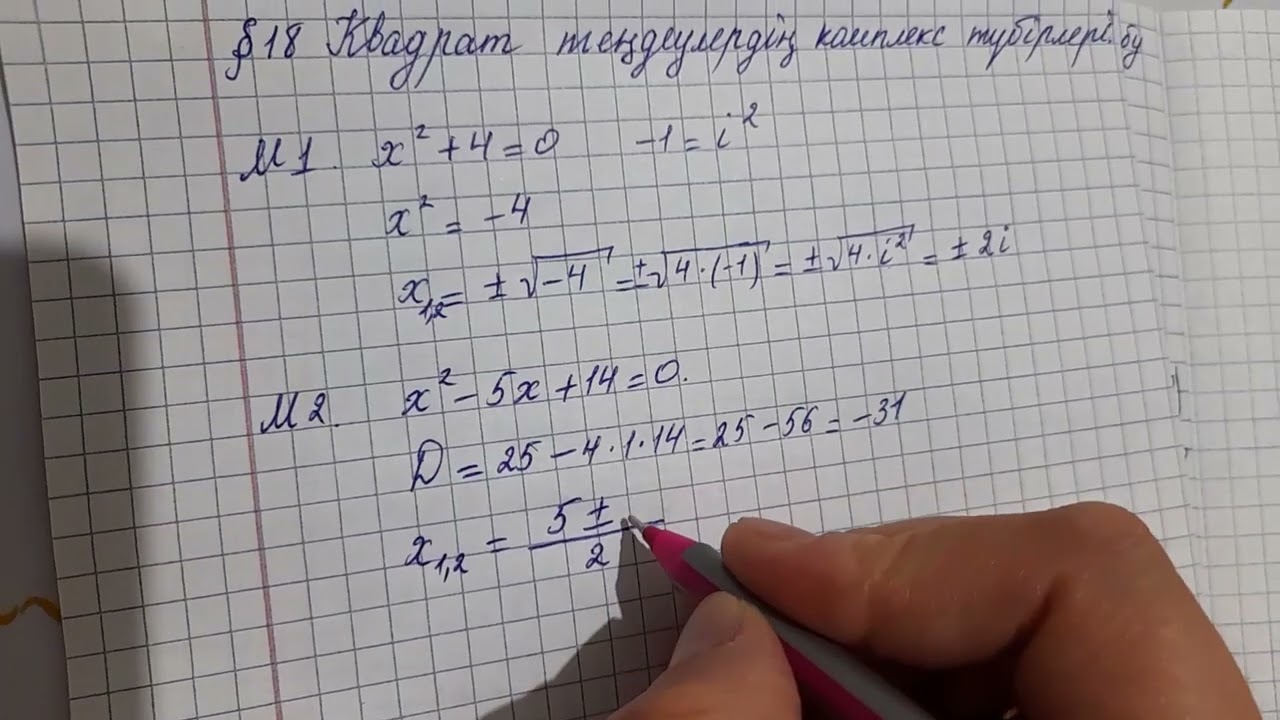 §18 Квадрат теңдеулердің комплекс түбірлері. бу
М1. x² + 4 = 0 -1 = i²
x² = -4
x₁,₂ = ± √-4 = ±√4·(-1) = ±√4·i² = ± 2i
М2. x² - 5x + 14 = 0.
D = 25 - 4·1·14 = 25 - 56 = -31
x₁,₂ = 5 ± / 2